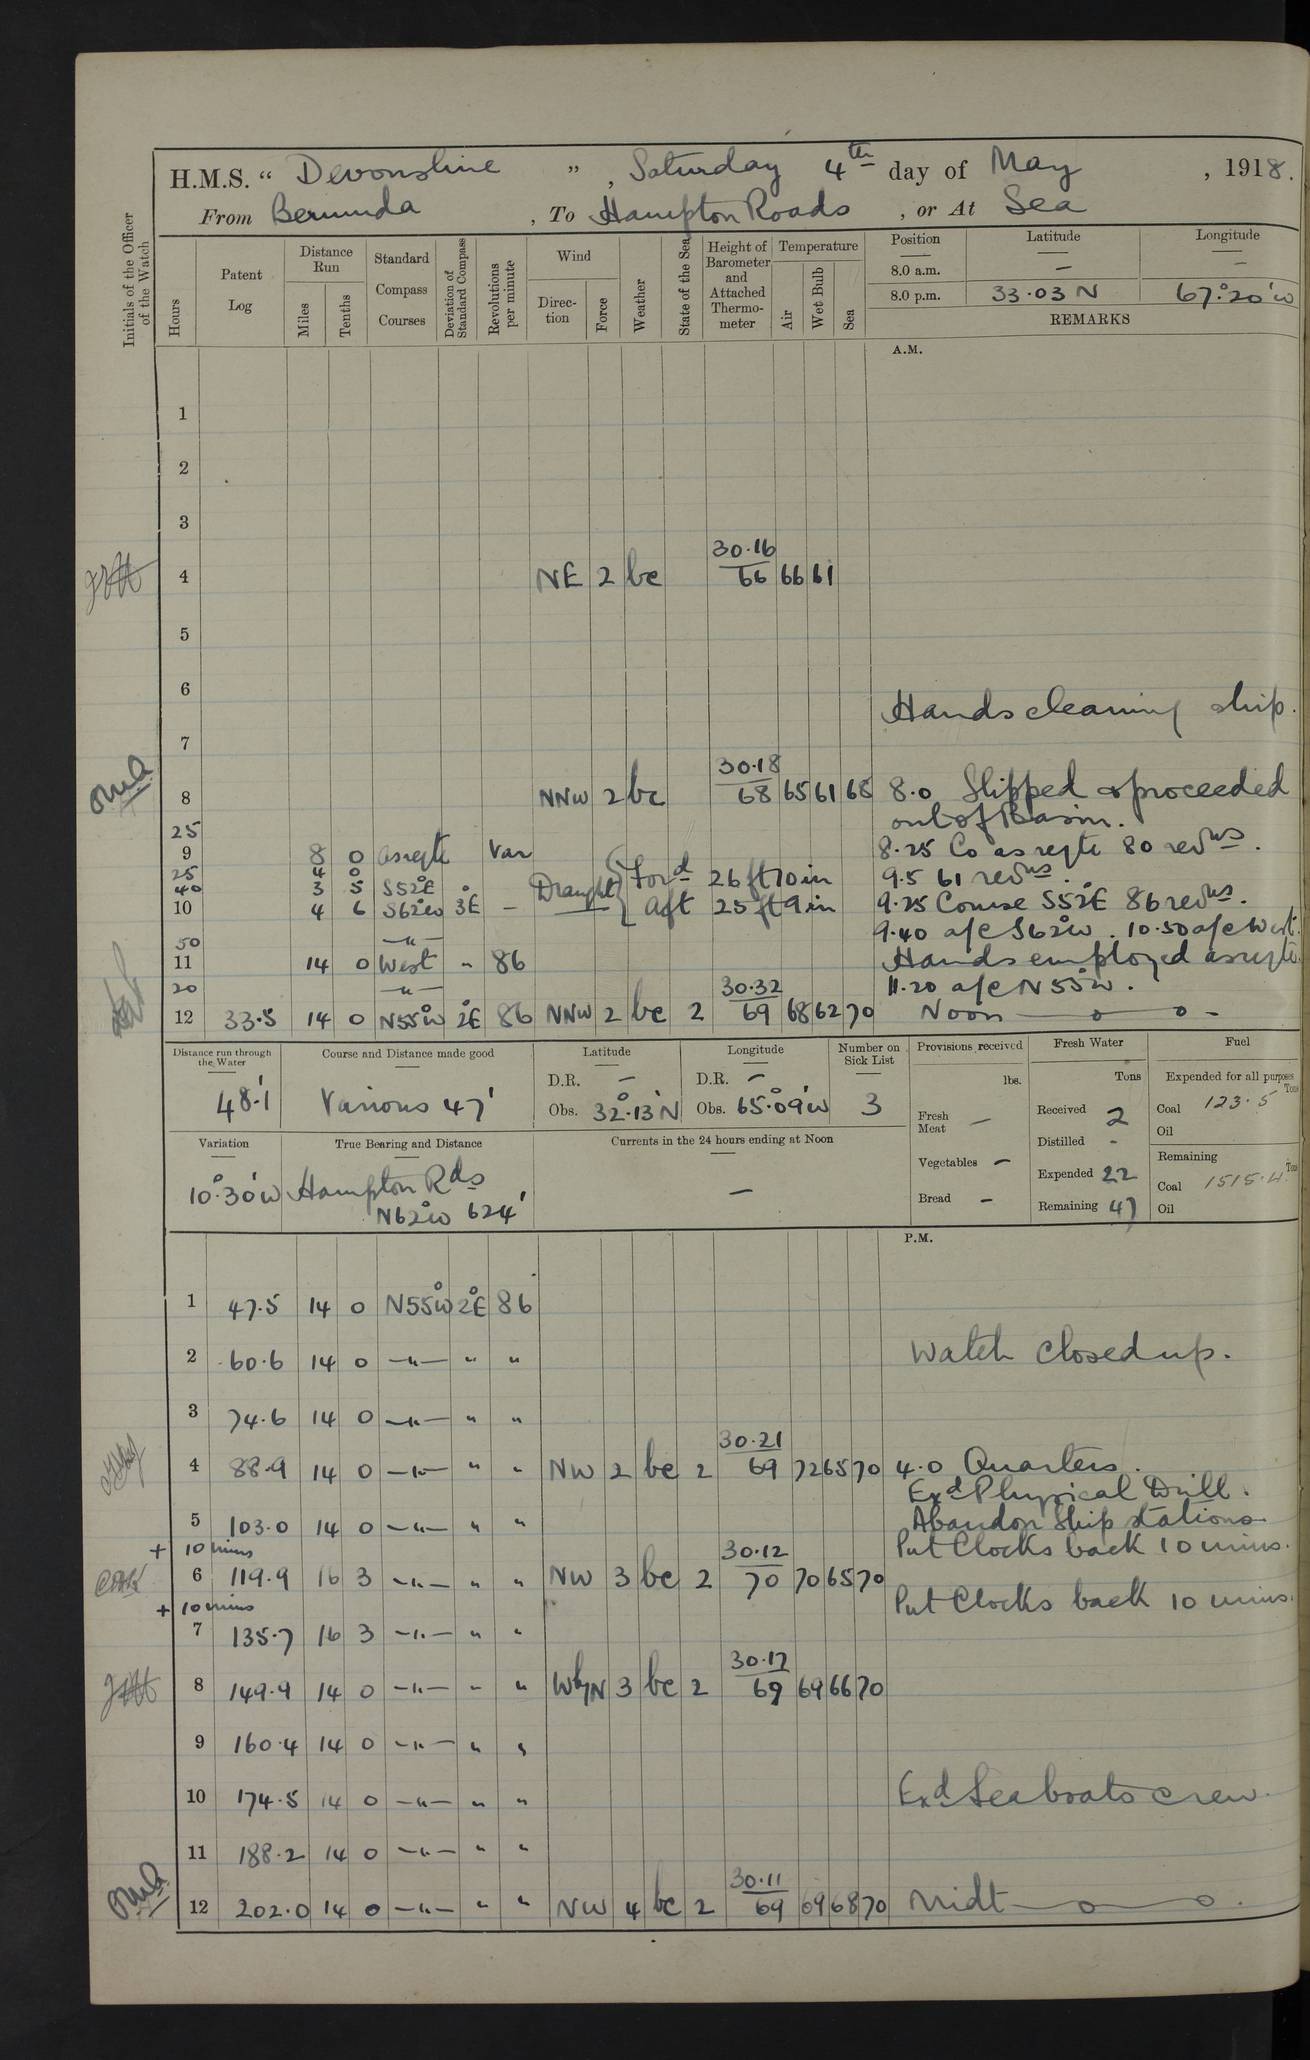 H.M.S. “ Devonshire ”, Saturday 4th day of May, 1918.
From Bermuda, To Hampton Roads, or At Sea
Initials of the Officer of the Watch
Hours
Patent Log
Distance Run
Miles
Tenths
Standard Compass Courses
Deviation of Standard Compass
Revolutions per minute
Wind
Direc-tion
Force
Weather
State of the Sea
Height of Barometer and Attached Thermo-meter
Temperature
Air
Wet Bulb
Sea
Position Latitude Longitude
8.0 a.m. — –
8.0 p.m. 33·03 N 67°·20' W
REMARKS
A.M.
1
2
3
4 NE 2 bc 30·16 66 66 61
5
6
Hands cleaning ship.
7
8 NNW 2 bc 30·18 68 65 61 68 8·0 Slipped & proceeded
out of Basin.
25
9 8 0 as reqte Var 8·25 Co as reqte 80 revns.
25 4 0 Draught { Ford 26 ft 10 in 9.5 61 revns.
40 3 5 S52°E Aft 25 ft 9 in 9·25 Course S52°E 86 revns.
10 4 6 S62°W 3°E –
9·40 a/c S62°W. 10·50 a/c West.
50 —"—
11 14 0 West " 86 Hands employed as reqte.
20 —"— 11·20 a/c N55°W.
12 33·5 14 0 N55°W 2°E 86 NNW 2 bc 2 30·32 69 68 62 70 Noon
Distance run through the Water
48·1'
Course and Distance made good
Various 47'
Latitude
D.R. —
Obs. 32°·13' N
Longitude
D.R. —
Obs. 65°·09' W
Number on Sick List
3
Provisions received
lbs.
Fresh Meat —
Vegetables —
Bread –
Fresh Water
Tons
Received 2
Distilled -
Expended 22
Remaining 47
Fuel
Expended for all purposes
Tons
Coal 123·5
Oil
Remaining
Tons
Coal 1515·4
Oil
Variation
10°·30' W
True Bearing and Distance
Hampton Rds
N62°W 624'
Currents in the 24 hours ending at Noon
—
P.M.
1 47·5 14 0 N55°W 2°E 86
2 60·6 14 0 —"— " " Watch closed up.
3 74·6 14 0 —"— " "
4 88·9 14 0 —"— " " NW 2 bc 2 30·21 69 72 65 70 4·0 Quarters.
Exd Physical Drill.
5 103·0 14 0 —"— " " Abandon Ship stations.
+ 10 mins Put Clocks back 10 mins.
6 119·9 16 3 —"— " " NW 3 bc 2 30·12 70 70 65 70
+ 10 mins Put Clocks back 10 mins.
7 135·7 16 3 —"— " "
8 149·9 14 0 —"— " " WbyN 3 bc 2 30·17 69 69 66 70
9 160·4 14 0 —"— " "
10 174·5 14 0 —"— " " Exd Sea boats crew.
11 188·2 14 0 —"— " "
12 202·0 14 0 —"— " " NW 4 bc 2 30·11 69 69 68 70 Midt